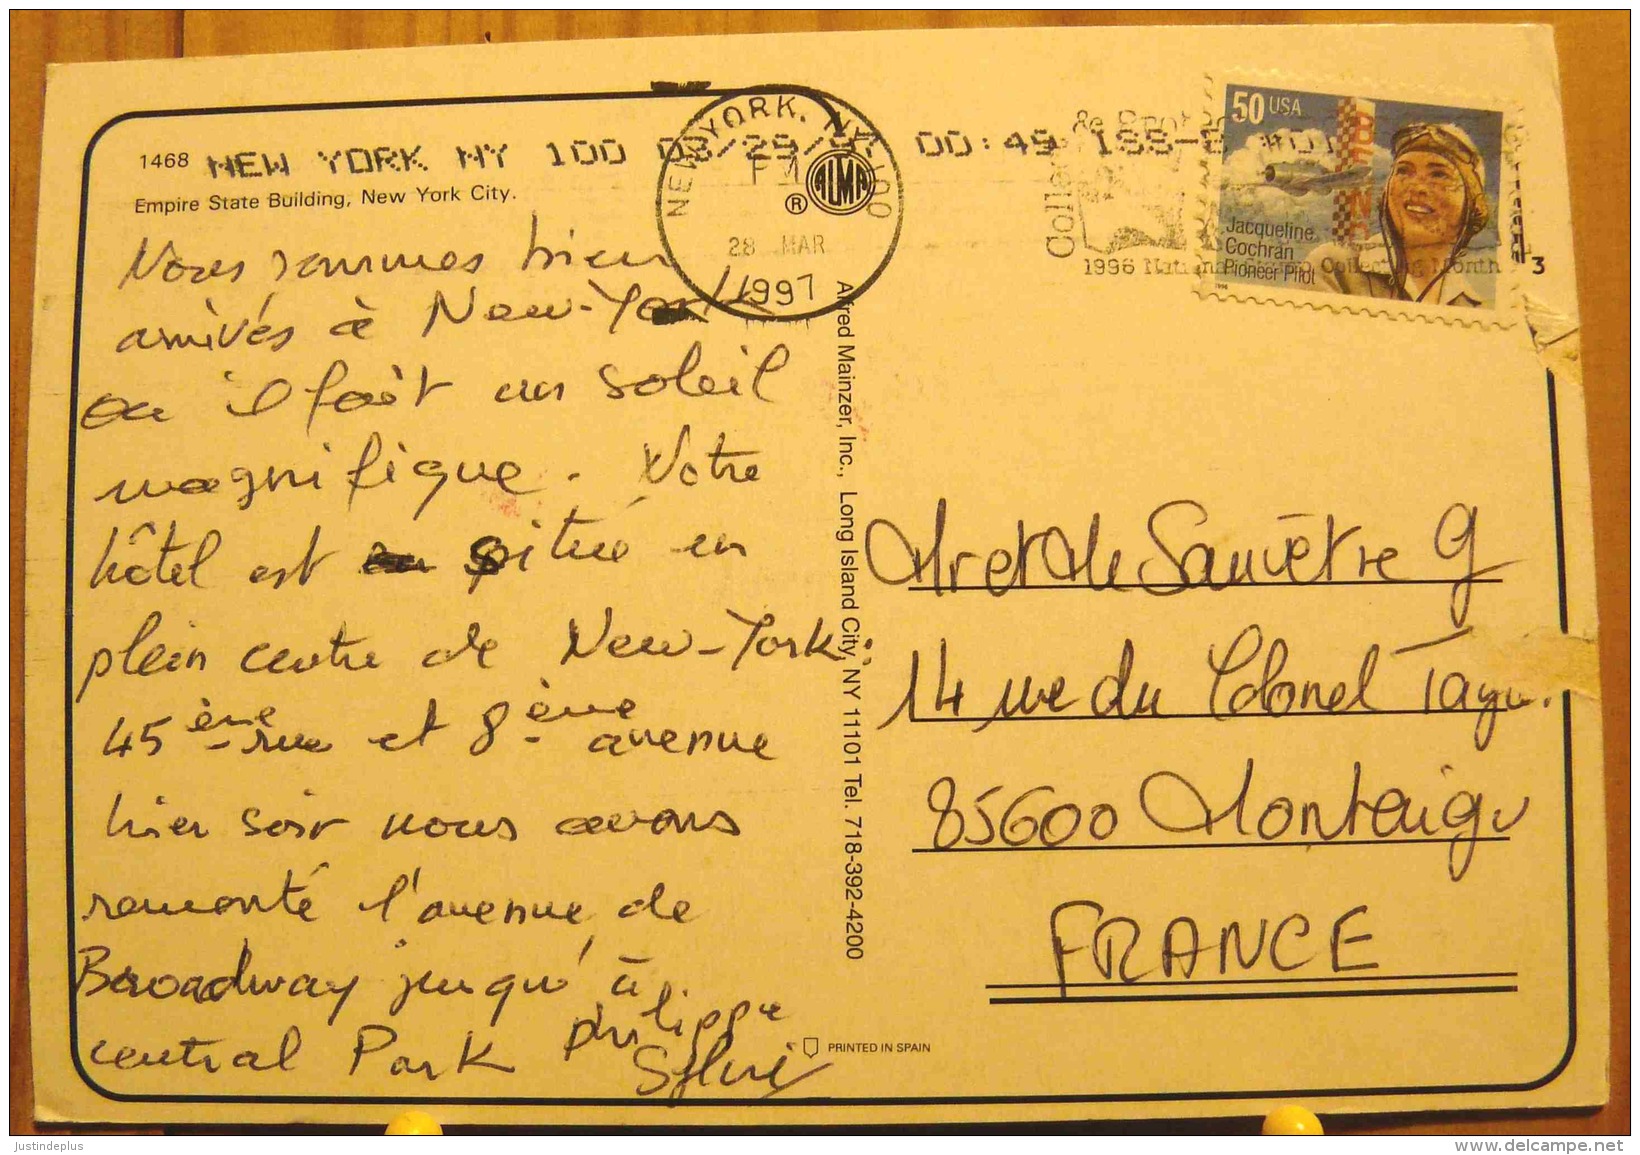 1468 NEW YORK NY 100 03/29/97 00:49 188-
Empire State Building, New York City.
NEW YORK, NY 100
PM
28 MAR
1997
® ALMA
50 USA
Jacqueline
Cochran
Pioneer Pilot
1996
BENDIX
Collect
1996 National Stamp Collecting Month
3
Nous sommes bien
arrivés à New-York
ou il fait un soleil
magnifique. Notre
hôtel est situé en
plein centre de New-York:
45ème rue et 8ème avenue
hier soir nous avons
remonté l'avenue de
Broadway jusqu'à
central Park Philippe
Sylvie
Alfred Mainzer, Inc., Long Island City, NY 11101 Tel. 718-392-4200
Mr et Me Sauvêtre G
14 rue du Colonel Tayu.
85600 Montaigu
FRANCE
PRINTED IN SPAIN
justindeplus
www.delcampe.net